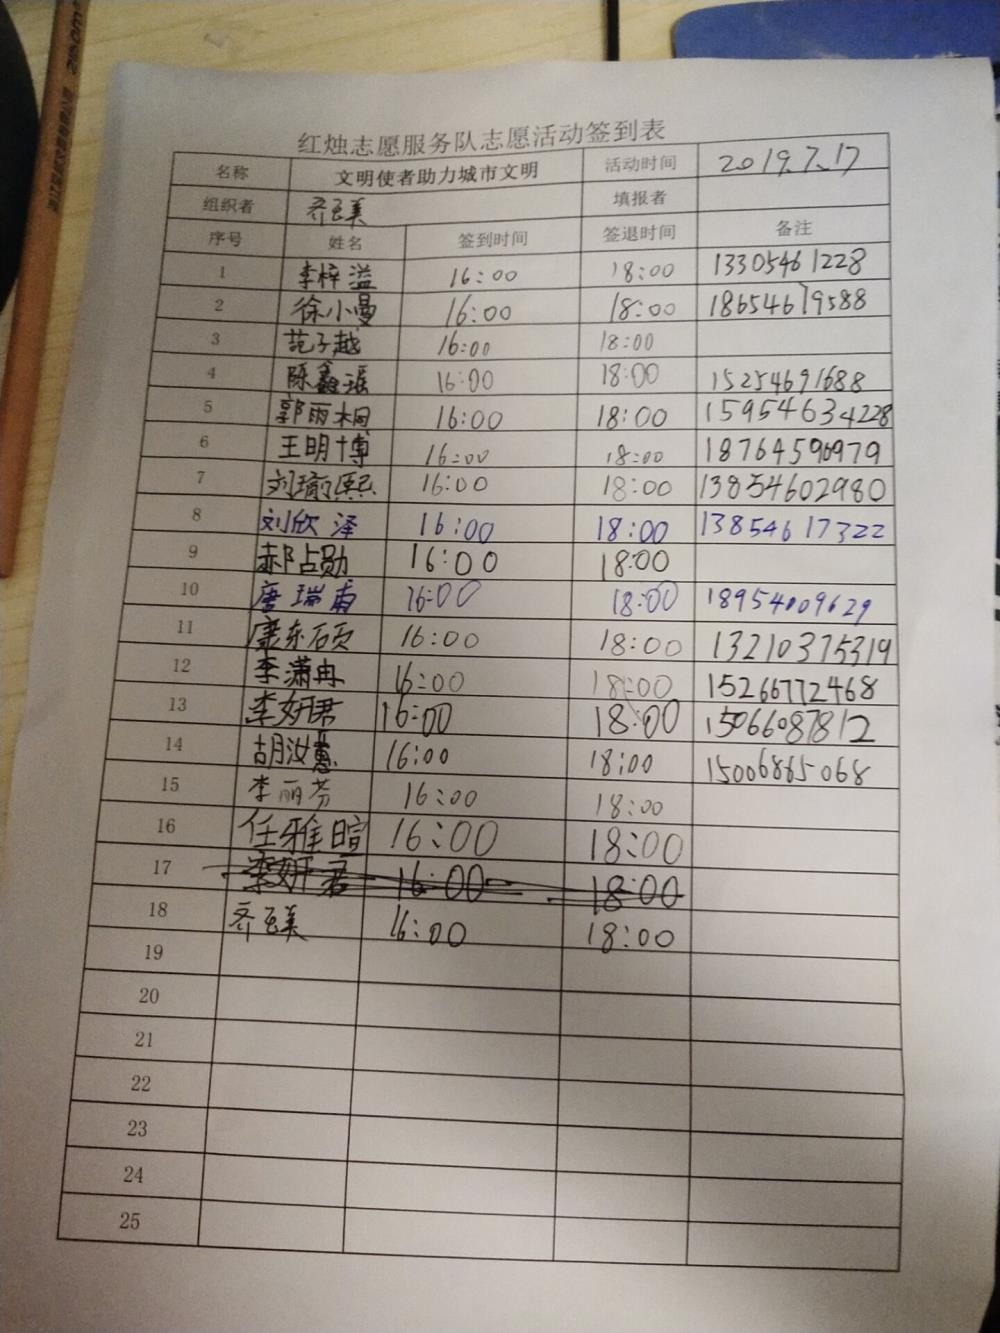 红烛志愿服务队志愿活动签到表
名称 文明使者助力城市文明 活动时间 2019.7.17
组织者 齐玉美 填报者
序号 姓名 签到时间 签退时间 备注
1 李梓溢 16:00 18:00 13305461228
2 徐小曼 16:00 18:00 18654679588
3 范子越 16:00 18:00
4 陈鑫瑶 16:00 18:00 15254691688
5 郭雨桐 16:00 18:00 15954634228
6 王明博 16:00 18:00 18764596979
7 刘瑜熙 16:00 18:00 13854602980
8 刘欣泽 16:00 18:00 13854617322
9 郝占勋 16:00 18:00
10 唐瑞甫 16:00 18:00 18954009629
11 康东硕 16:00 18:00 13210375319
12 李潇冉 16:00 18:00 15266772468
13 李妍君 16:00 18:00 15066087812
14 胡汝蕙 16:00 18:00 15006865068
15 李丽芬 16:00 18:00
16 任雅暄 16:00 18:00
17 李妍君 16:00 18:00
18 齐玉美 16:00 18:00
19
20
21
22
23
24
25